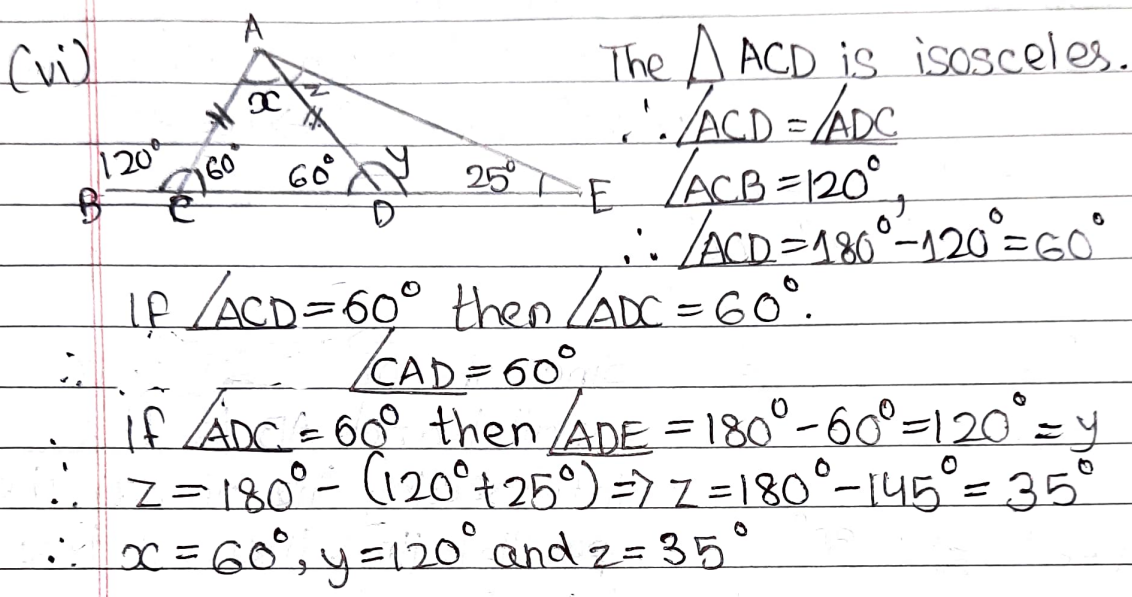 (vi)
A
x z
120° 60° 60° y 25°
B C D E
The △ ACD is isosceles.
∴ ∠ACD = ∠ADC
∠ACB = 120°,
∴ ∠ACD = 180° - 120° = 60°
If ∠ACD = 60° then ∠ADC = 60°.
∴ ∠CAD = 60°
If ∠ADC = 60° then ∠ADE = 180° - 60° = 120° = y
∴ z = 180° - (120° + 25°) => z = 180° - 145° = 35°
∴ x = 60°, y = 120° and z = 35°